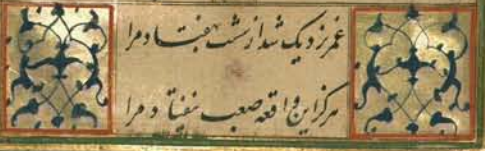 عمر نزدیک شد از شست بهفتاد مرا
هرگز این واقعه صعب نیفتاد مرا